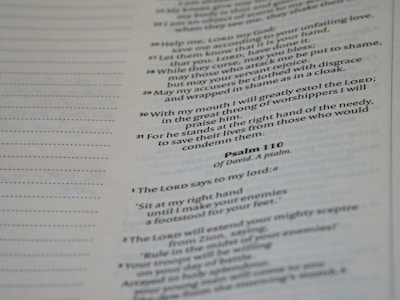 25 I am an object of
when they see me, they shake their
26 Help me, LORD my God;
save me according to your unfailing love.
27 Let them know that it is your hand,
that you, LORD, have done it.
28 While they curse, may you bless;
may those who attack me be put to shame,
but may your servant rejoice.
29 May my accusers be clothed with disgrace
and wrapped in shame as in a cloak.
30 With my mouth I will greatly extol the LORD;
in the great throng of worshippers I will
praise him.
31 For he stands at the right hand of the needy,
to save their lives from those who would
condemn them.
Psalm 110
Of David. A psalm.
1 The LORD says to my lord:
‘Sit at my right hand
until I make your enemies
a footstool for your feet.’
2 The LORD will extend your mighty sceptre
from Zion, saying,
‘Rule in the midst of your enemies!’
3 Your troops will be willing
on your day of battle.
Arrayed in holy splendour,
your young men will come to you
like dew from the morning's womb.